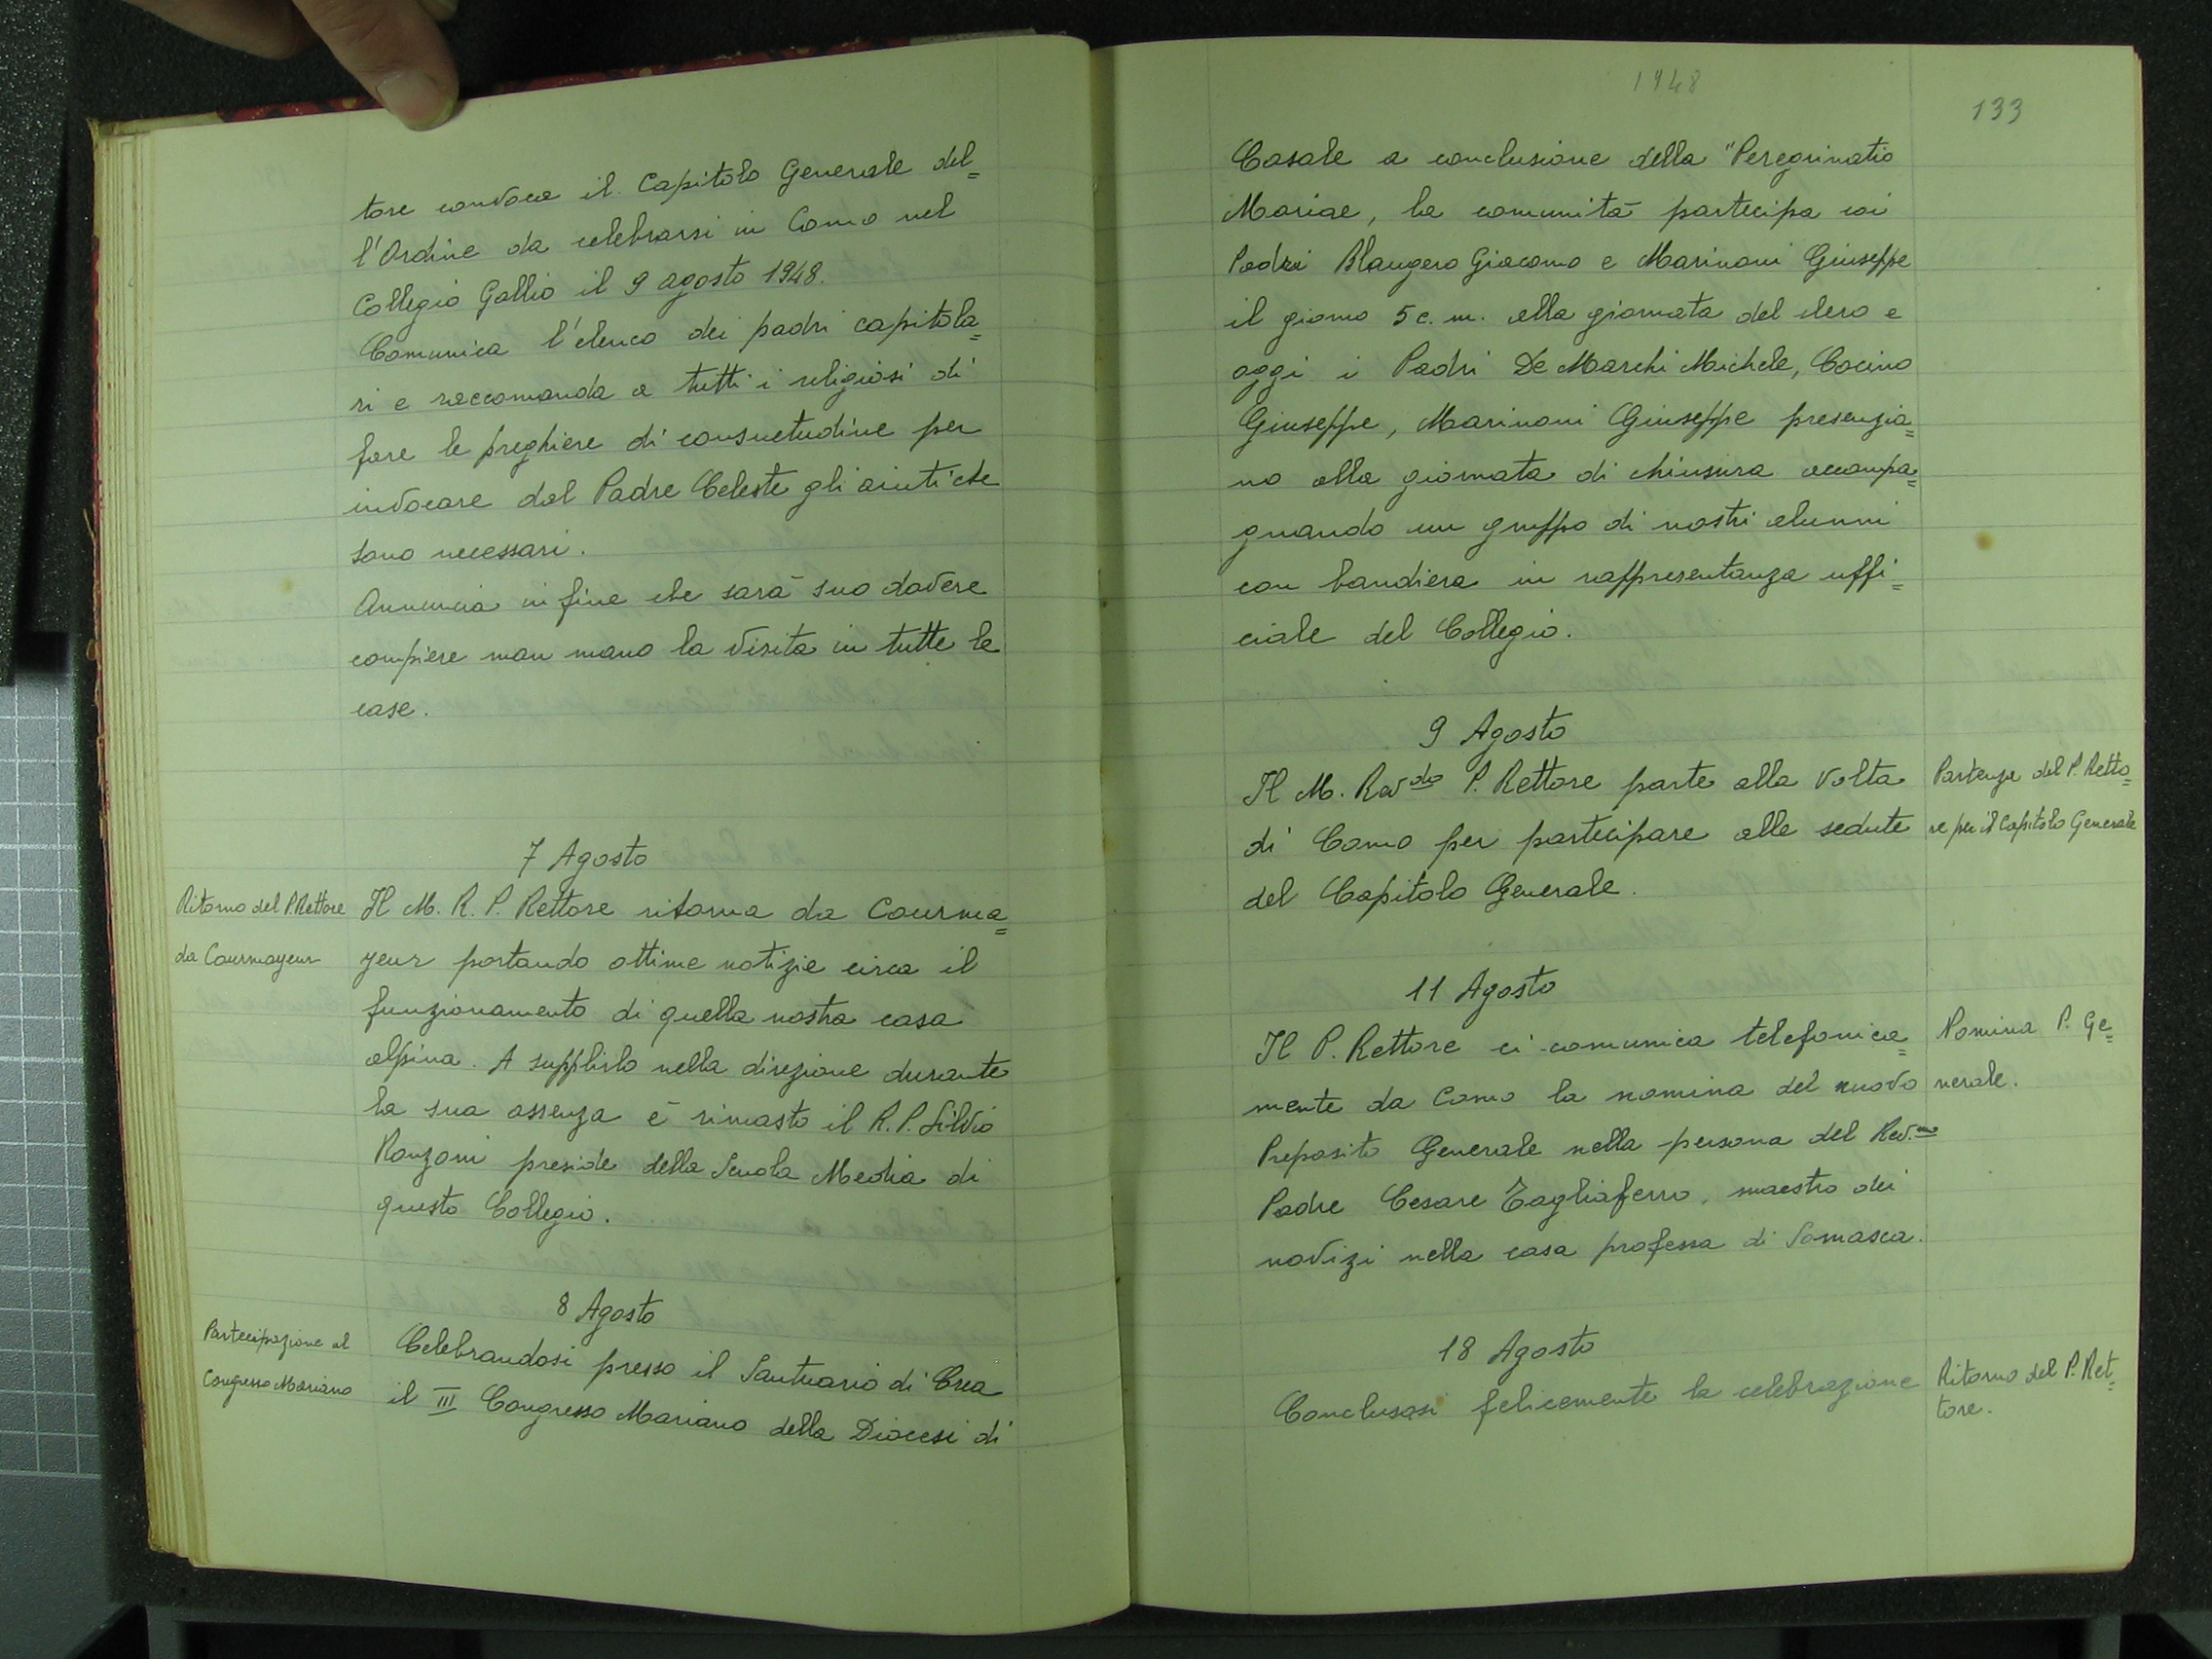 tore convoca il Capitolo Generale del=
l'Ordine da celebrarsi in Como nel
Collegio Gallio il 9 agosto 1948.
Comunica l'elenco dei padri capitola=
ri e raccomanda a tutti i religiosi di
fare le preghiere di consuetudine per
invocare dal Padre Celeste gli aiuti che
sono necessari.
Annuncia in fine che sarà suo dovere
compiere man mano la visita in tutte le
case.
7 Agosto
Ritorno del P. Rettore
da Courmayeur
Il M. R. P. Rettore ritorna da Courma=
yeur portando ottime notizie circa il
funzionamento di quella nostra casa
alpina. A supplirlo nella direzione durante
la sua assenza è rimasto il R. P. Silvio
Ronzoni preside della Scuola Media di
questo Collegio.
8 Agosto
Partecipazione al
Congresso Mariano
Celebrandosi presso il Santuario di Crea
il III Congresso Mariano della Diocesi di
1948
133
Casale a conclusione della "Peregrinatio
Mariae, la comunità partecipa coi
Padri Blangero Giacomo e Marinoni Giuseppe
il giorno 5 c. m. alla giornata del clero e
oggi i Padri De Marchi Michele, Cocino
Giuseppe, Marinoni Giuseppe presenzia=
no alla giornata di chiusura accompa=
gnando un gruppo di nostri alunni
con bandiera in rappresentanza uffi=
ciale del Collegio.
9 Agosto
Il M. Rev.do P. Rettore parte alla volta
di Como per partecipare alle sedute
del Capitolo Generale.
Partenza del P. Retto=
re per il Capitolo Generale
11 Agosto
Il P. Rettore ci comunica telefonica=
mente da Como la nomina del nuovo
Preposito Generale nella persona del Rev.mo
Padre Cesare Tagliaferro, maestro dei
novizi nella casa professa di Somasca.
Nomina P. Ge=
nerale.
18 Agosto
Conclusasi felicemente la celebrazione
Ritorno del P. Ret=
tore.